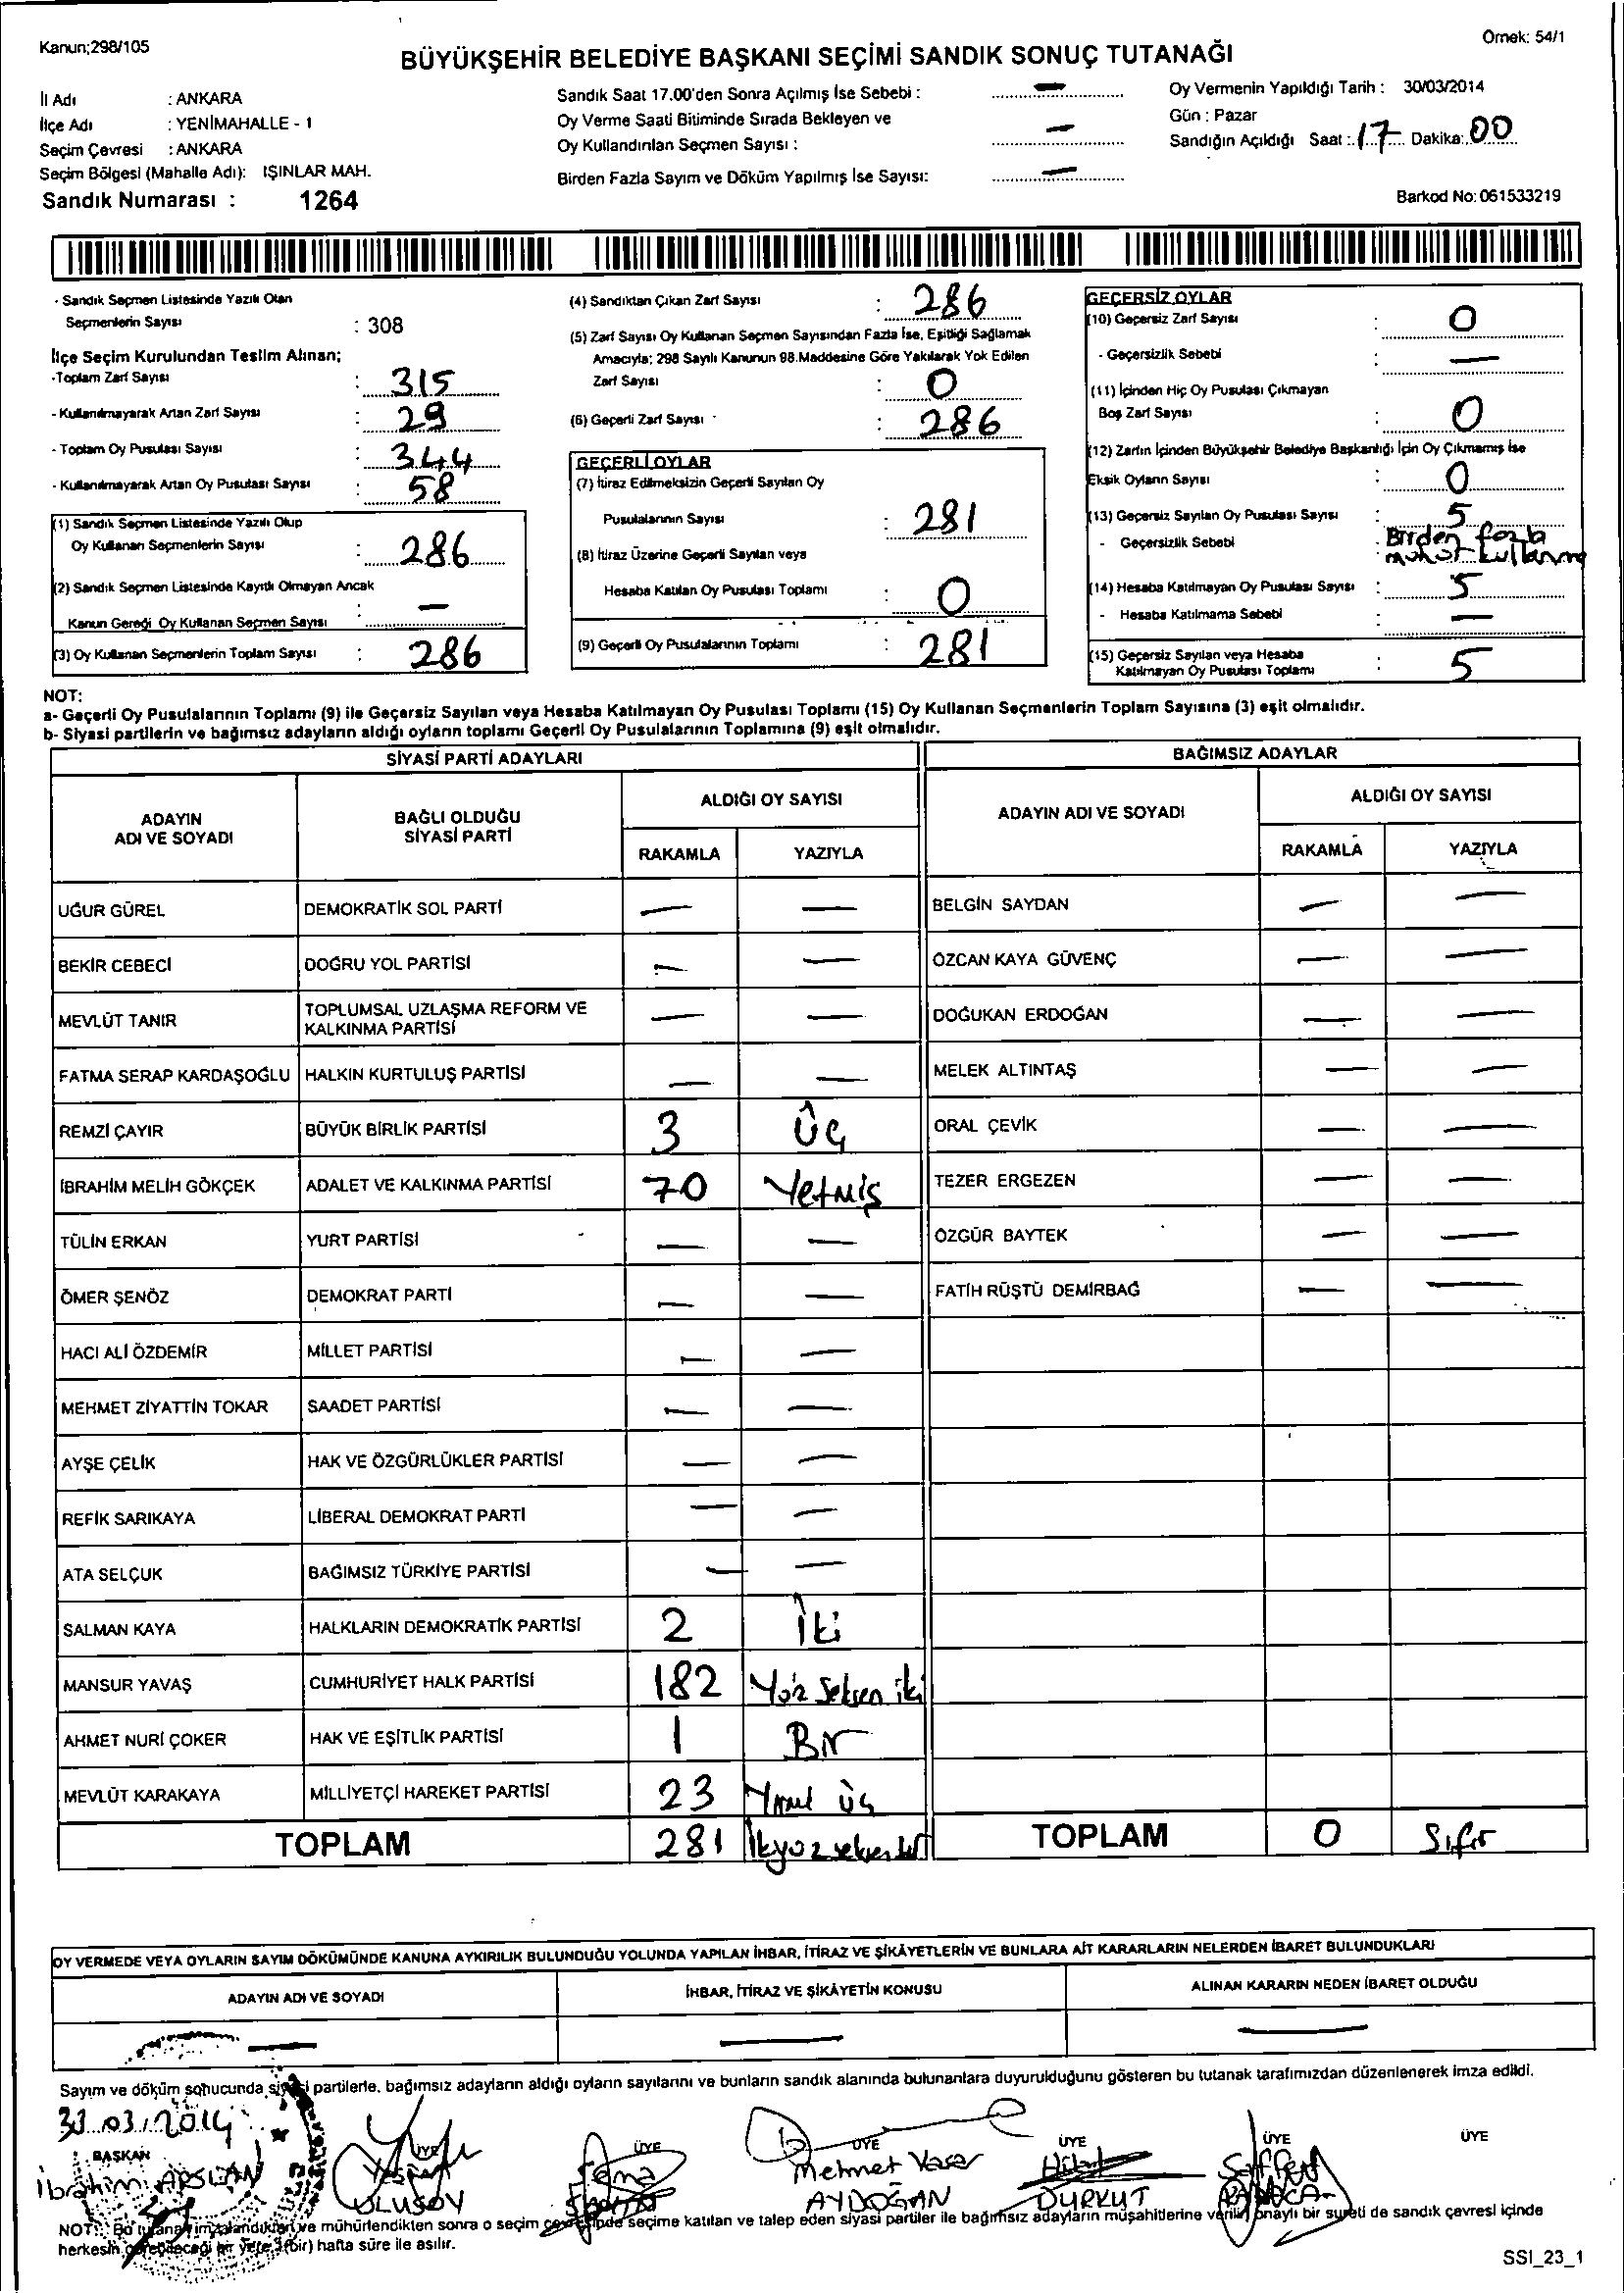 Kanun;298/105
Örnek: 54/1
BÜYÜKŞEHİR BELEDİYE BAŞKANI SEÇİMİ SANDIK SONUÇ TUTANAĞI
İl Adı : ANKARA
İlçe Adı : YENİMAHALLE - 1
Seçim Çevresi : ANKARA
Seçim Bölgesi (Mahalle Adı): IŞINLAR MAH.
Sandık Numarası : 1264
Sandık Saat 17.00'den Sonra Açılmış İse Sebebi : —
Oy Verme Saati Bitiminde Sırada Bekleyen ve
Oy Kullandırılan Seçmen Sayısı : —
Birden Fazla Sayım ve Döküm Yapılmış İse Sayısı: —
Oy Vermenin Yapıldığı Tarih : 30/03/2014
Gün : Pazar
Sandığın Açıldığı Saat : 17 Dakika: 00
Barkod No: 061533219
- Sandık Seçmen Listesinde Yazılı Olan
Seçmenlerin Sayısı : 308
İlçe Seçim Kurulundan Teslim Alınan;
-Toplam Zarf Sayısı : 315
- Kullanılmayarak Artan Zarf Sayısı : 29
- Toplam Oy Pusulası Sayısı : 344
- Kullanılmayarak Artan Oy Pusulası Sayısı : 58
(1) Sandık Seçmen Listesinde Yazılı Olup
Oy Kullanan Seçmenlerin Sayısı : 286
(2) Sandık Seçmen Listesinde Kayıtlı Olmayan Ancak
Kanun Gereği Oy Kullanan Seçmen Sayısı : —
(3) Oy Kullanan Seçmenlerin Toplam Sayısı : 286
(4) Sandıktan Çıkan Zarf Sayısı : 286
(5) Zarf Sayısı Oy Kullanan Seçmen Sayısından Fazla İse, Eşitliği Sağlamak
Amacıyla; 298 Sayılı Kanunun 98.Maddesine Göre Yakılarak Yok Edilen
Zarf Sayısı : 0
(6) Geçerli Zarf Sayısı : 286
GEÇERLİ OYLAR
(7) İtiraz Edilmeksizin Geçerli Sayılan Oy
Pusulalarının Sayısı : 281
(8) İtiraz Üzerine Geçerli Sayılan veya
Hesaba Katılan Oy Pusulası Toplamı : 0
(9) Geçerli Oy Pusulalarının Toplamı : 281
GEÇERSİZ OYLAR
(10) Geçersiz Zarf Sayısı : 0
- Geçersizlik Sebebi : —
(11) İçinden Hiç Oy Pusulası Çıkmayan
Boş Zarf Sayısı : 0
(12) Zarfın İçinden Büyükşehir Belediye Başkanlığı İçin Oy Çıkmamış İse
Eksik Oyların Sayısı : 0
(13) Geçersiz Sayılan Oy Pusulası Sayısı : 5
- Geçersizlik Sebebi : Birden fazla
mühür kullanma
(14) Hesaba Katılmayan Oy Pusulası Sayısı : 5
- Hesaba Katılmama Sebebi : —
(15) Geçersiz Sayılan veya Hesaba
Katılmayan Oy Pusulası Toplamı : 5
NOT:
a- Geçerli Oy Pusulalarının Toplamı (9) ile Geçersiz Sayılan veya Hesaba Katılmayan Oy Pusulası Toplamı (15) Oy Kullanan Seçmenlerin Toplam Sayısına (3) eşit olmalıdır.
b- Siyasi partilerin ve bağımsız adayların aldığı oyların toplamı Geçerli Oy Pusulalarının Toplamına (9) eşit olmalıdır.
SİYASİ PARTİ ADAYLARI
ADAYIN
ADI VE SOYADI
BAĞLI OLDUĞU
SİYASİ PARTİ
ALDIĞI OY SAYISI
RAKAMLA YAZIYLA
UĞUR GÜREL DEMOKRATİK SOL PARTİ — —
BEKİR CEBECİ DOĞRU YOL PARTİSİ — —
MEVLÜT TANIR TOPLUMSAL UZLAŞMA REFORM VE
KALKINMA PARTİSİ — —
FATMA SERAP KARDAŞOĞLU HALKIN KURTULUŞ PARTİSİ — —
REMZİ ÇAYIR BÜYÜK BİRLİK PARTİSİ 3 Üç
İBRAHİM MELİH GÖKÇEK ADALET VE KALKINMA PARTİSİ 70 Yetmiş
TÜLİN ERKAN YURT PARTİSİ — —
ÖMER ŞENÖZ DEMOKRAT PARTİ — —
HACI ALİ ÖZDEMİR MİLLET PARTİSİ — —
MEHMET ZİYATTİN TOKAR SAADET PARTİSİ — —
AYŞE ÇELİK HAK VE ÖZGÜRLÜKLER PARTİSİ — —
REFİK SARIKAYA LİBERAL DEMOKRAT PARTİ — —
ATA SELÇUK BAĞIMSIZ TÜRKİYE PARTİSİ — —
SALMAN KAYA HALKLARIN DEMOKRATİK PARTİSİ 2 İki
MANSUR YAVAŞ CUMHURİYET HALK PARTİSİ 182 Yüz Seksen iki
AHMET NURİ ÇOKER HAK VE EŞİTLİK PARTİSİ 1 Bir
MEVLÜT KARAKAYA MİLLİYETÇİ HAREKET PARTİSİ 23 Yirmi üç
TOPLAM 281 İkiyüz seksen bir
BAĞIMSIZ ADAYLAR
ADAYIN ADI VE SOYADI
ALDIĞI OY SAYISI
RAKAMLA YAZIYLA
BELGİN SAYDAN — —
ÖZCAN KAYA GÜVENÇ — —
DOĞUKAN ERDOĞAN — —
MELEK ALTINTAŞ — —
ORAL ÇEVİK — —
TEZER ERGEZEN — —
ÖZGÜR BAYTEK — —
FATİH RÜŞTÜ DEMİRBAĞ — —
TOPLAM 0 Sıfır
OY VERMEDE VEYA OYLARIN SAYIM DÖKÜMÜNDE KANUNA AYKIRILIK BULUNDUĞU YOLUNDA YAPILAN İHBAR, İTİRAZ VE ŞİKÂYETLERİN VE BUNLARA AİT KARARLARIN NELERDEN İBARET BULUNDUKLARI
ADAYIN ADI VE SOYADI İHBAR, İTİRAZ VE ŞİKÂYETİN KONUSU ALINAN KARARIN NEDEN İBARET OLDUĞU
— — —
Sayım ve döküm sonucunda siyasi partilerle, bağımsız adayların aldığı oyların sayılarını ve bunların sandık alanında bulunanlara duyurulduğunu gösteren bu tutanak tarafımızdan düzenlenerek imza edildi.
30.03.2014
BAŞKAN ÜYE ÜYE ÜYE ÜYE ÜYE ÜYE
İbrahim ARSLAN
ULUSOY
Sema
Mehmet Yaşar
AYDOĞAN
DURKUT
NOT: Bu tutanak imzalandıktan ve mühürlendikten sonra o seçim çevresinde seçime katılan ve talep eden siyasi partiler ile bağımsız adayların müşahitlerine verilir, onaylı bir sureti de sandık çevresi içinde
herkesin görebileceği bir yere 1 (bir) hafta süre ile asılır.
SSI_23_1